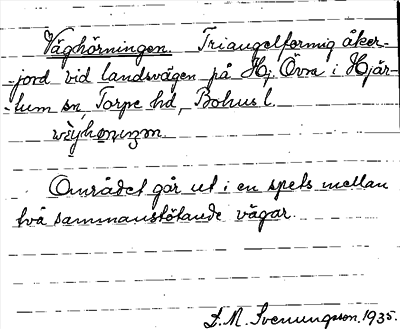 Väghörningen. Triangelformig åker-
-jord vid landsvägen på Hj. Övra i Hjär-
-tum sn, Torpe hd, Bohus l.
Området går ut i en spets mellan
två sammanstötande vägar.
F. M. Svenungsson. 1935.